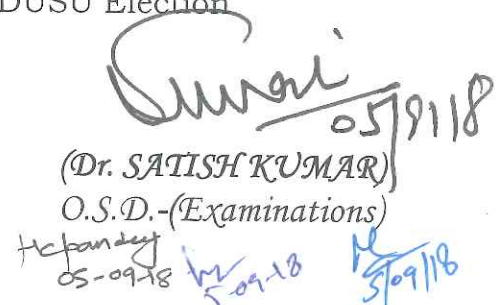 DUSU Election
05/9/18
(Dr. SATISH KUMAR)
O.S.D.-(Examinations)
Hcpandey
05-09-18 5-09-18 5/09/18